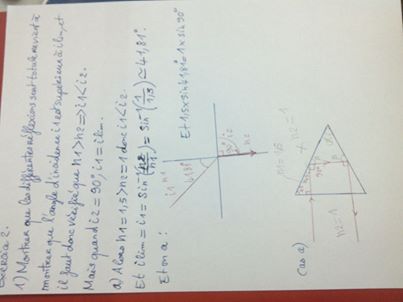 Exercice 2.
1) Montrer que les différentes réflexions sont totale revient à
montrer que l'angle d'incidence i1 est supérieure à ilim, et
il faut donc vérifié que n1>n2 => i1<i2.
Mais quand i2 = 90°, i1 = ilim.
a) Alors n1 = 1,5 > n2 = 1 donc i1<i2.
Et ilim = i1 = sin⁻¹(n2/n1) = sin⁻¹(1/1,5) ≈ 41,81°.
Et on a :
Et 1,5 x sin 41,81 = 1 x sin 90°
i1
n1
41,81°
90° i2
n2
(cas a)
n2 = 1
n1 = 1,5
n2 = 1